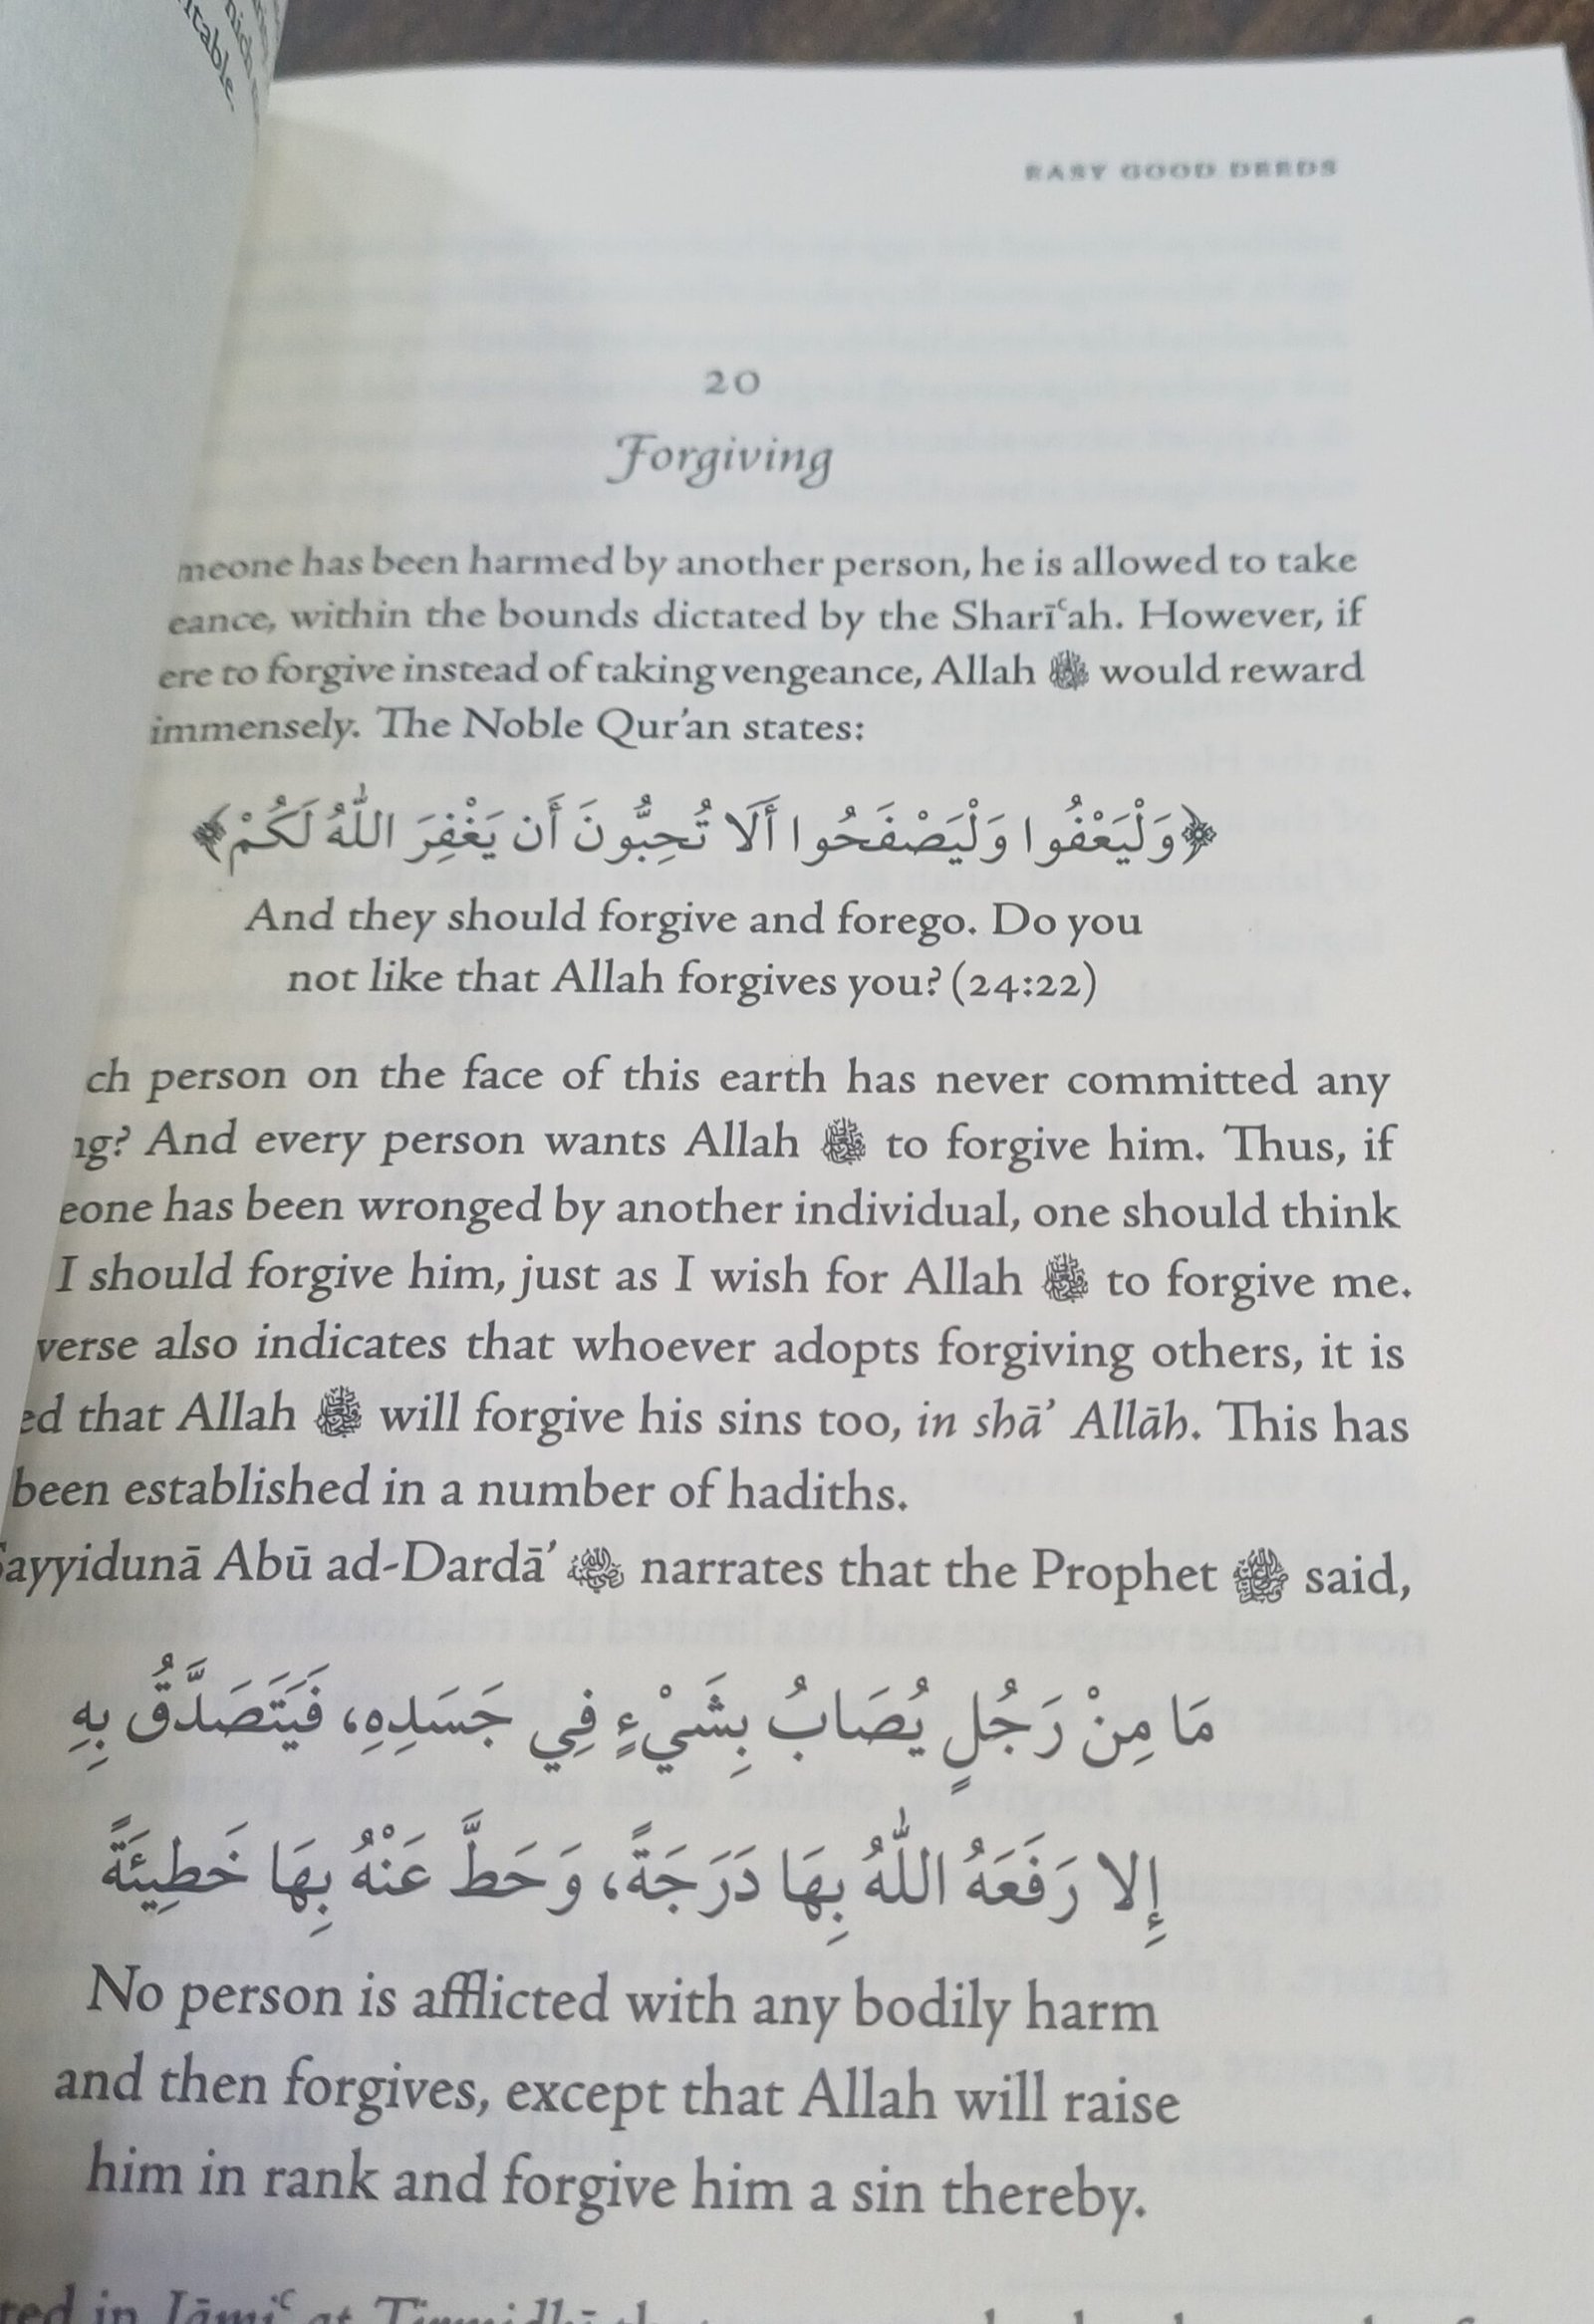 EASY GOOD DEEDS
20
Forgiving
has been harmed by another person, he is allowed to take
within the bounds dictated by the Sharīʿah. However, if
to forgive instead of taking vengeance, Allah ﷻ would reward
immensely. The Noble Qur’an states:
﴿وَلْيَعْفُوا وَلْيَصْفَحُوا أَلَا تُحِبُّونَ أَن يَغْفِرَ اللّٰهُ لَكُمْ﴾
And they should forgive and forego. Do you
not like that Allah forgives you? (24:22)
person on the face of this earth has never committed any
And every person wants Allah ﷻ to forgive him. Thus, if
has been wronged by another individual, one should think
I should forgive him, just as I wish for Allah ﷻ to forgive me.
verse also indicates that whoever adopts forgiving others, it is
that Allah ﷻ will forgive his sins too, in shā’ Allāh. This has
been established in a number of hadiths.
Sayyidunā Abū ad-Dardā’ narrates that the Prophet ﷺ said,
مَا مِنْ رَجُلٍ يُصَابُ بِشَيْءٍ فِي جَسَدِهِ، فَيَتَصَدَّقُ بِهِ
إِلا رَفَعَهُ اللّٰهُ بِهَا دَرَجَةً، وَحَطَّ عَنْهُ بِهَا خَطِيئَةً
No person is afflicted with any bodily harm
and then forgives, except that Allah will raise
him in rank and forgive him a sin thereby.
in Jāmiʿ at Tirmidhī